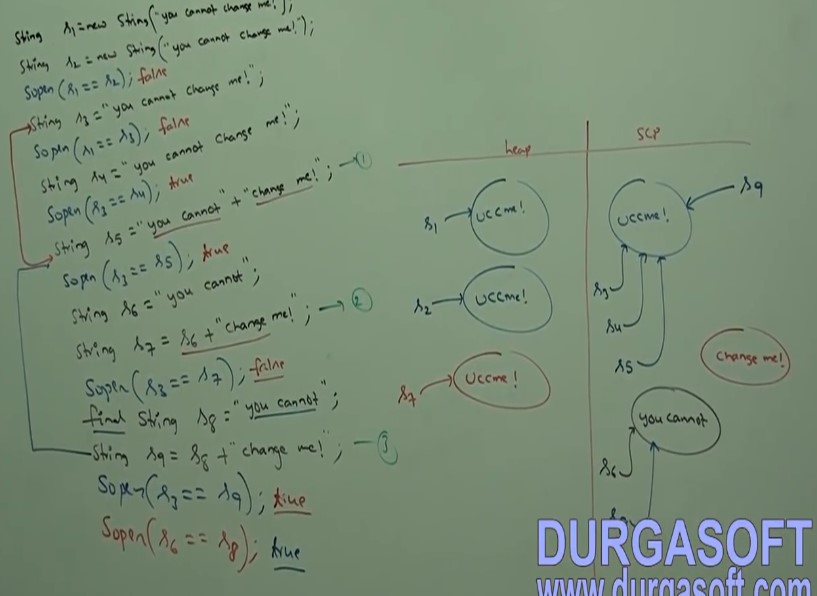 String s1=new String("you cannot change me!");
String s2=new String("you cannot change me!");
Sopln(s1==s2); false
String s3="you cannot change me!";
Sopln(s1==s3); false
String s4="you cannot change me!";
Sopln(s3==s4); true
String s5="you cannot"+"change me!"; → 1
Sopln(s3==s5); true
String s6="you cannot";
String s7=s6+"change me!"; → 2
Sopln(s3==s7); false
final String s8="you cannot";
String s9=s8+"change me!"; — 3
Sopln(s3==s9); true
Sopln(s6==s8); true
heap
SCP
s1
UCCme!
UCCme!
s9
s2
UCCme!
s3
s4
s5
s7
UCCme!
change me!
you cannot
s6
s8
DURGASOFT
www.durgasoft.com